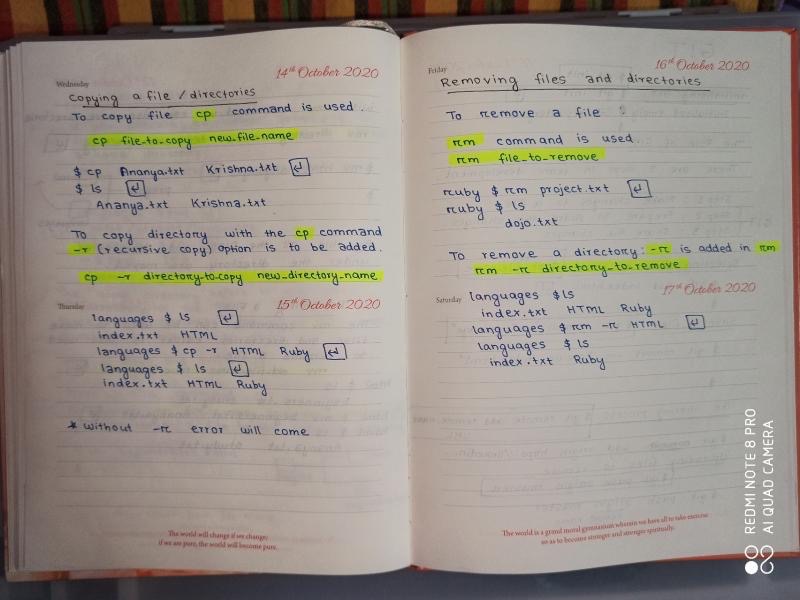 Wednesday
14th October 2020
Copying a file / directories
To copy file cp command is used.
cp file_to_copy new_file_name
$ cp Ananya.txt Krishna.txt ↵
$ ls ↵
Ananya.txt Krishna.txt
To copy directory with the cp command
-r (recursive copy) option is to be added.
cp -r directory-to-copy new_directory_name
Thursday
15th October 2020
languages $ ls ↵
index.txt HTML
languages $ cp -r HTML Ruby ↵
languages $ ls ↵
index.txt HTML Ruby
* without -r error will come
The world will change if we change;
if we are pure, the world will become pure.
Friday
16th October 2020
Removing files and directories
To remove a file :
rm command is used.
rm file_to_remove
ruby $ rm project.txt ↵
ruby $ ls
dojo.txt
To remove a directory: -r is added in rm
rm -r directory_to_remove
Saturday
17th October 2020
languages $ ls
index.txt HTML Ruby
languages $ rm -r HTML ↵
languages $ ls
index.txt Ruby
The world is a grand moral gymnasium wherein we have all to take exercise
so as to become stronger and stronger spiritually.
REDMI NOTE 8 PRO
AI QUAD CAMERA